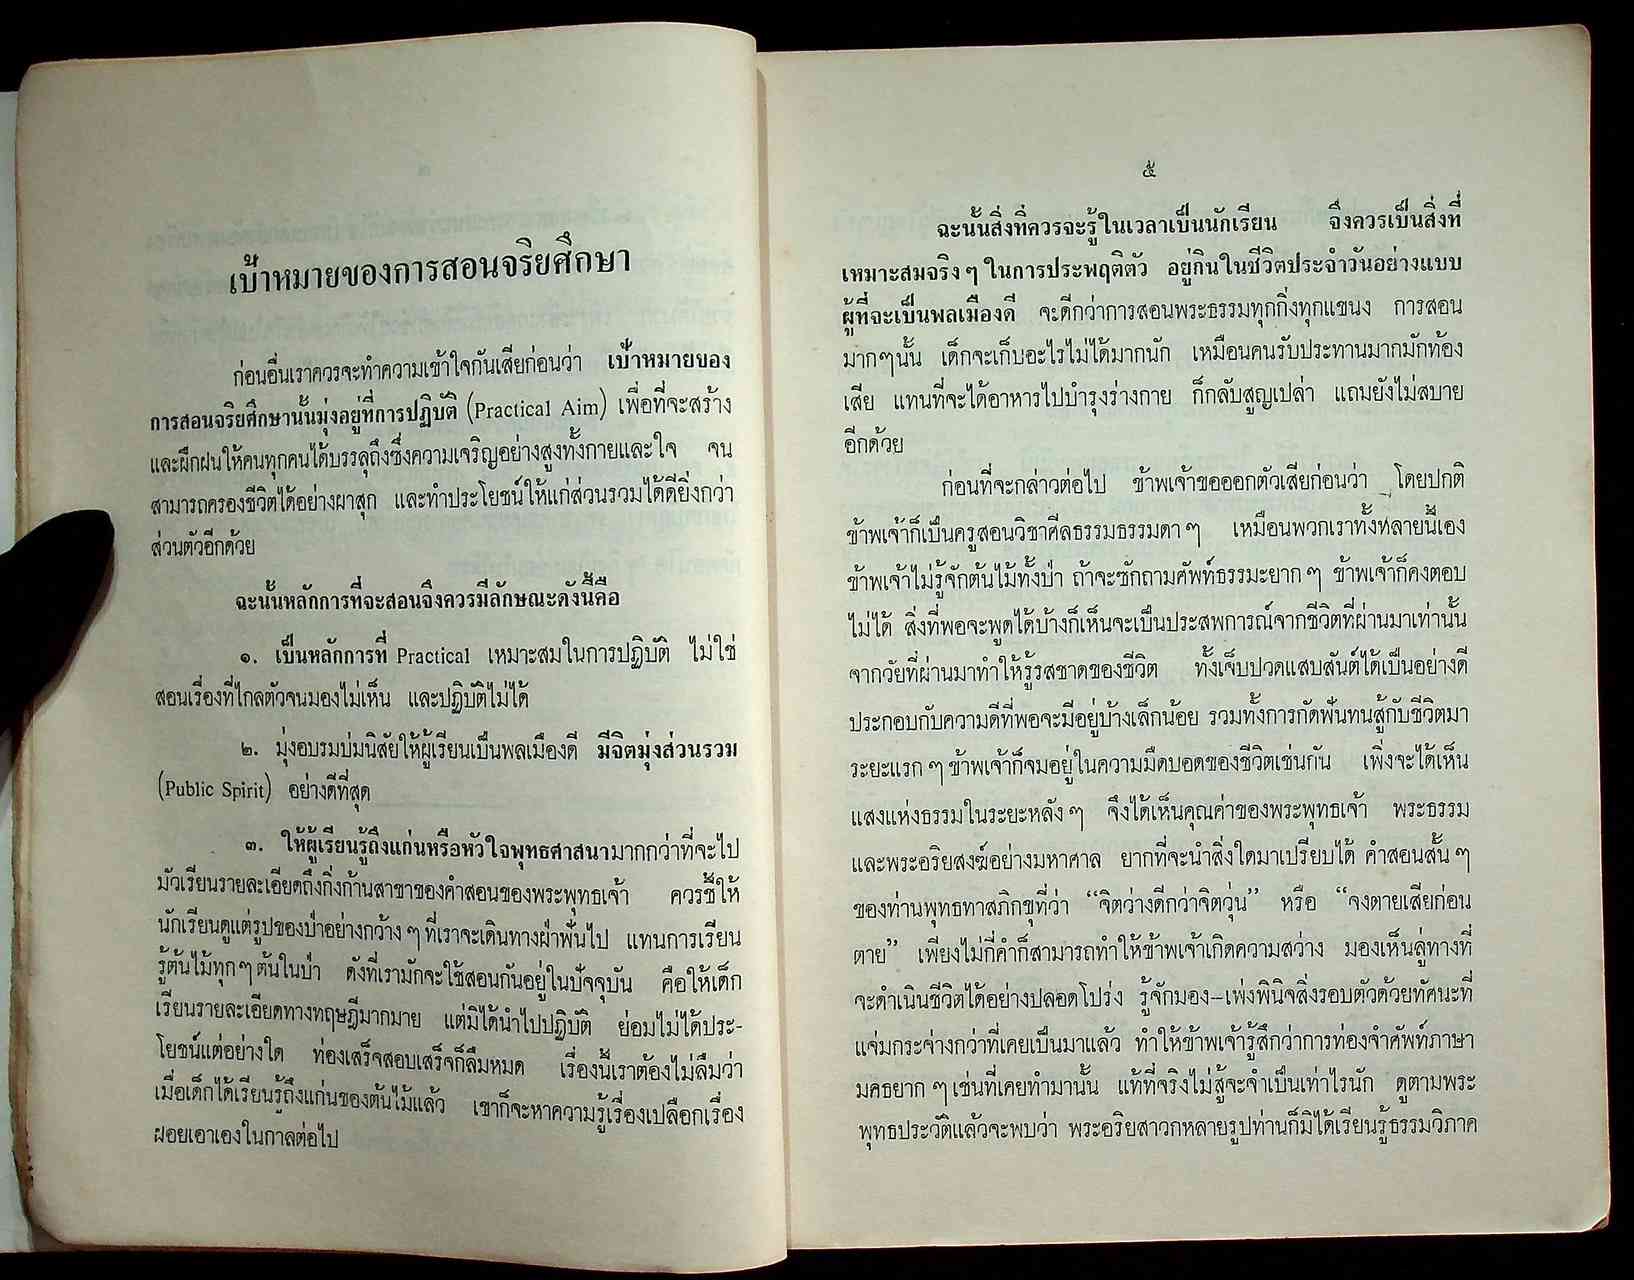 เป้าหมายของการสอนจริยศึกษา
ก่อนอื่นเราควรจะทำความเข้าใจกันเสียก่อนว่า เป้าหมายของ
การสอนจริยศึกษานั้นมุ่งอยู่ที่การปฏิบัติ (Practical Aim) เพื่อที่จะสร้าง
และฝึกฝนให้คนทุกคนได้บรรลุถึงซึ่งความเจริญอย่างสูงทั้งกายและใจ จน
สามารถครองชีวิตได้อย่างผาสุก และทำประโยชน์ให้แก่ส่วนรวมได้ดียิ่งกว่า
ส่วนตัวอีกด้วย
ฉะนั้นหลักการที่จะสอนจึงควรมีลักษณะดังนี้คือ
๑. เป็นหลักการที่ Practical เหมาะสมในการปฏิบัติ ไม่ใช่
สอนเรื่องที่ไกลตัวจนมองไม่เห็น และปฏิบัติไม่ได้
๒. มุ่งอบรมบ่มนิสัยให้ผู้เรียนเป็นพลเมืองดี มีจิตมุ่งส่วนรวม
(Public Spirit) อย่างดีที่สุด
๓. ให้ผู้เรียนรู้ถึงแก่นหรือหัวใจพุทธศาสนามากกว่าที่จะไป
มัวเรียนรายละเอียดถึงกิ่งก้านสาขาของคำสอนของพระพุทธเจ้า ควรชี้ให้
นักเรียนดูแต่รูปของป่าอย่างกว้าง ๆ ที่เราจะเดินทางฝ่าฟันไป แทนการเรียน
รู้ต้นไม้ทุกๆ ต้นในป่า ดังที่เรามักจะใช้สอนกันอยู่ในปัจจุบัน คือให้เด็ก
เรียนรายละเอียดทางทฤษฎีมากมาย แต่มิได้นำไปปฏิบัติ ย่อมไม่ได้ประ-
โยชน์แต่อย่างใด ท่องเสร็จสอบเสร็จก็ลืมหมด เรื่องนี้เราต้องไม่ลืมว่า
เมื่อเด็กได้เรียนรู้ถึงแก่นของต้นไม้แล้ว เขาก็จะหาความรู้เรื่องเปลือกเรื่อง
ฝอยเอาเองในกาลต่อไป
๕
ฉะนั้นสิ่งที่ควรจะรู้ในเวลาเป็นนักเรียน จึงควรเป็นสิ่งที่
เหมาะสมจริง ๆ ในการประพฤติตัว อยู่กินในชีวิตประจำวันอย่างแบบ
ผู้ที่จะเป็นพลเมืองดี จะดีกว่าการสอนพระธรรมทุกกิ่งทุกแขนง การสอน
มากๆนั้น เด็กจะเก็บอะไรไม่ได้มากนัก เหมือนคนรับประทานมากมักท้อง
เสีย แทนที่จะได้อาหารไปบำรุงร่างกาย ก็กลับสูญเปล่า แถมยังไม่สบาย
อีกด้วย
ก่อนที่จะกล่าวต่อไป ข้าพเจ้าขอออกตัวเสียก่อนว่า โดยปกติ
ข้าพเจ้าก็เป็นครูสอนวิชาศีลธรรมธรรมดา ๆ เหมือนพวกเราทั้งหลายนี้เอง
ข้าพเจ้าไม่รู้จักต้นไม้ทั้งป่า ถ้าจะซักถามศัพท์ธรรมะยาก ๆ ข้าพเจ้าก็คงตอบ
ไม่ได้ สิ่งที่พอจะพูดได้บ้างก็เห็นจะเป็นประสพการณ์จากชีวิตที่ผ่านมาเท่านั้น
จากวัยที่ผ่านมาทำให้รู้รสชาดของชีวิต ทั้งเจ็บปวดแสบสันต์ได้เป็นอย่างดี
ประกอบกับความดีที่พอจะมีอยู่บ้างเล็กน้อย รวมทั้งการกัดฟันทนสู้กับชีวิตมา
ระยะแรก ๆ ข้าพเจ้าก็จมอยู่ในความมืดบอดของชีวิตเช่นกัน เพิ่งจะได้เห็น
แสงแห่งธรรมในระยะหลัง ๆ จึงได้เห็นคุณค่าของพระพุทธเจ้า พระธรรม
และพระอริยสงฆ์อย่างมหาศาล ยากที่จะนำสิ่งใดมาเปรียบได้ คำสอนสั้น ๆ
ของท่านพุทธทาสภิกขุที่ว่า “จิตว่างดีกว่าจิตวุ่น” หรือ “จงตายเสียก่อน
ตาย” เพียงไม่กี่คำก็สามารถทำให้ข้าพเจ้าเกิดความสว่าง มองเห็นลู่ทางที่
จะดำเนินชีวิตได้อย่างปลอดโปร่ง รู้จักมอง-เพ่งพินิจสิ่งรอบตัวด้วยทัศนะที่
แจ่มกระจ่างกว่าที่เคยเป็นมาแล้ว ทำให้ข้าพเจ้ารู้สึกว่าการท่องจำศัพท์ภาษา
มคธยาก ๆ เช่นที่เคยทำมานั้น แท้ที่จริงไม่สู้จะจำเป็นเท่าไรนัก ดูตามพระ
พุทธประวัติแล้วจะพบว่า พระอริยสาวกหลายรูปท่านก็มิได้เรียนรู้ธรรมวิภาค